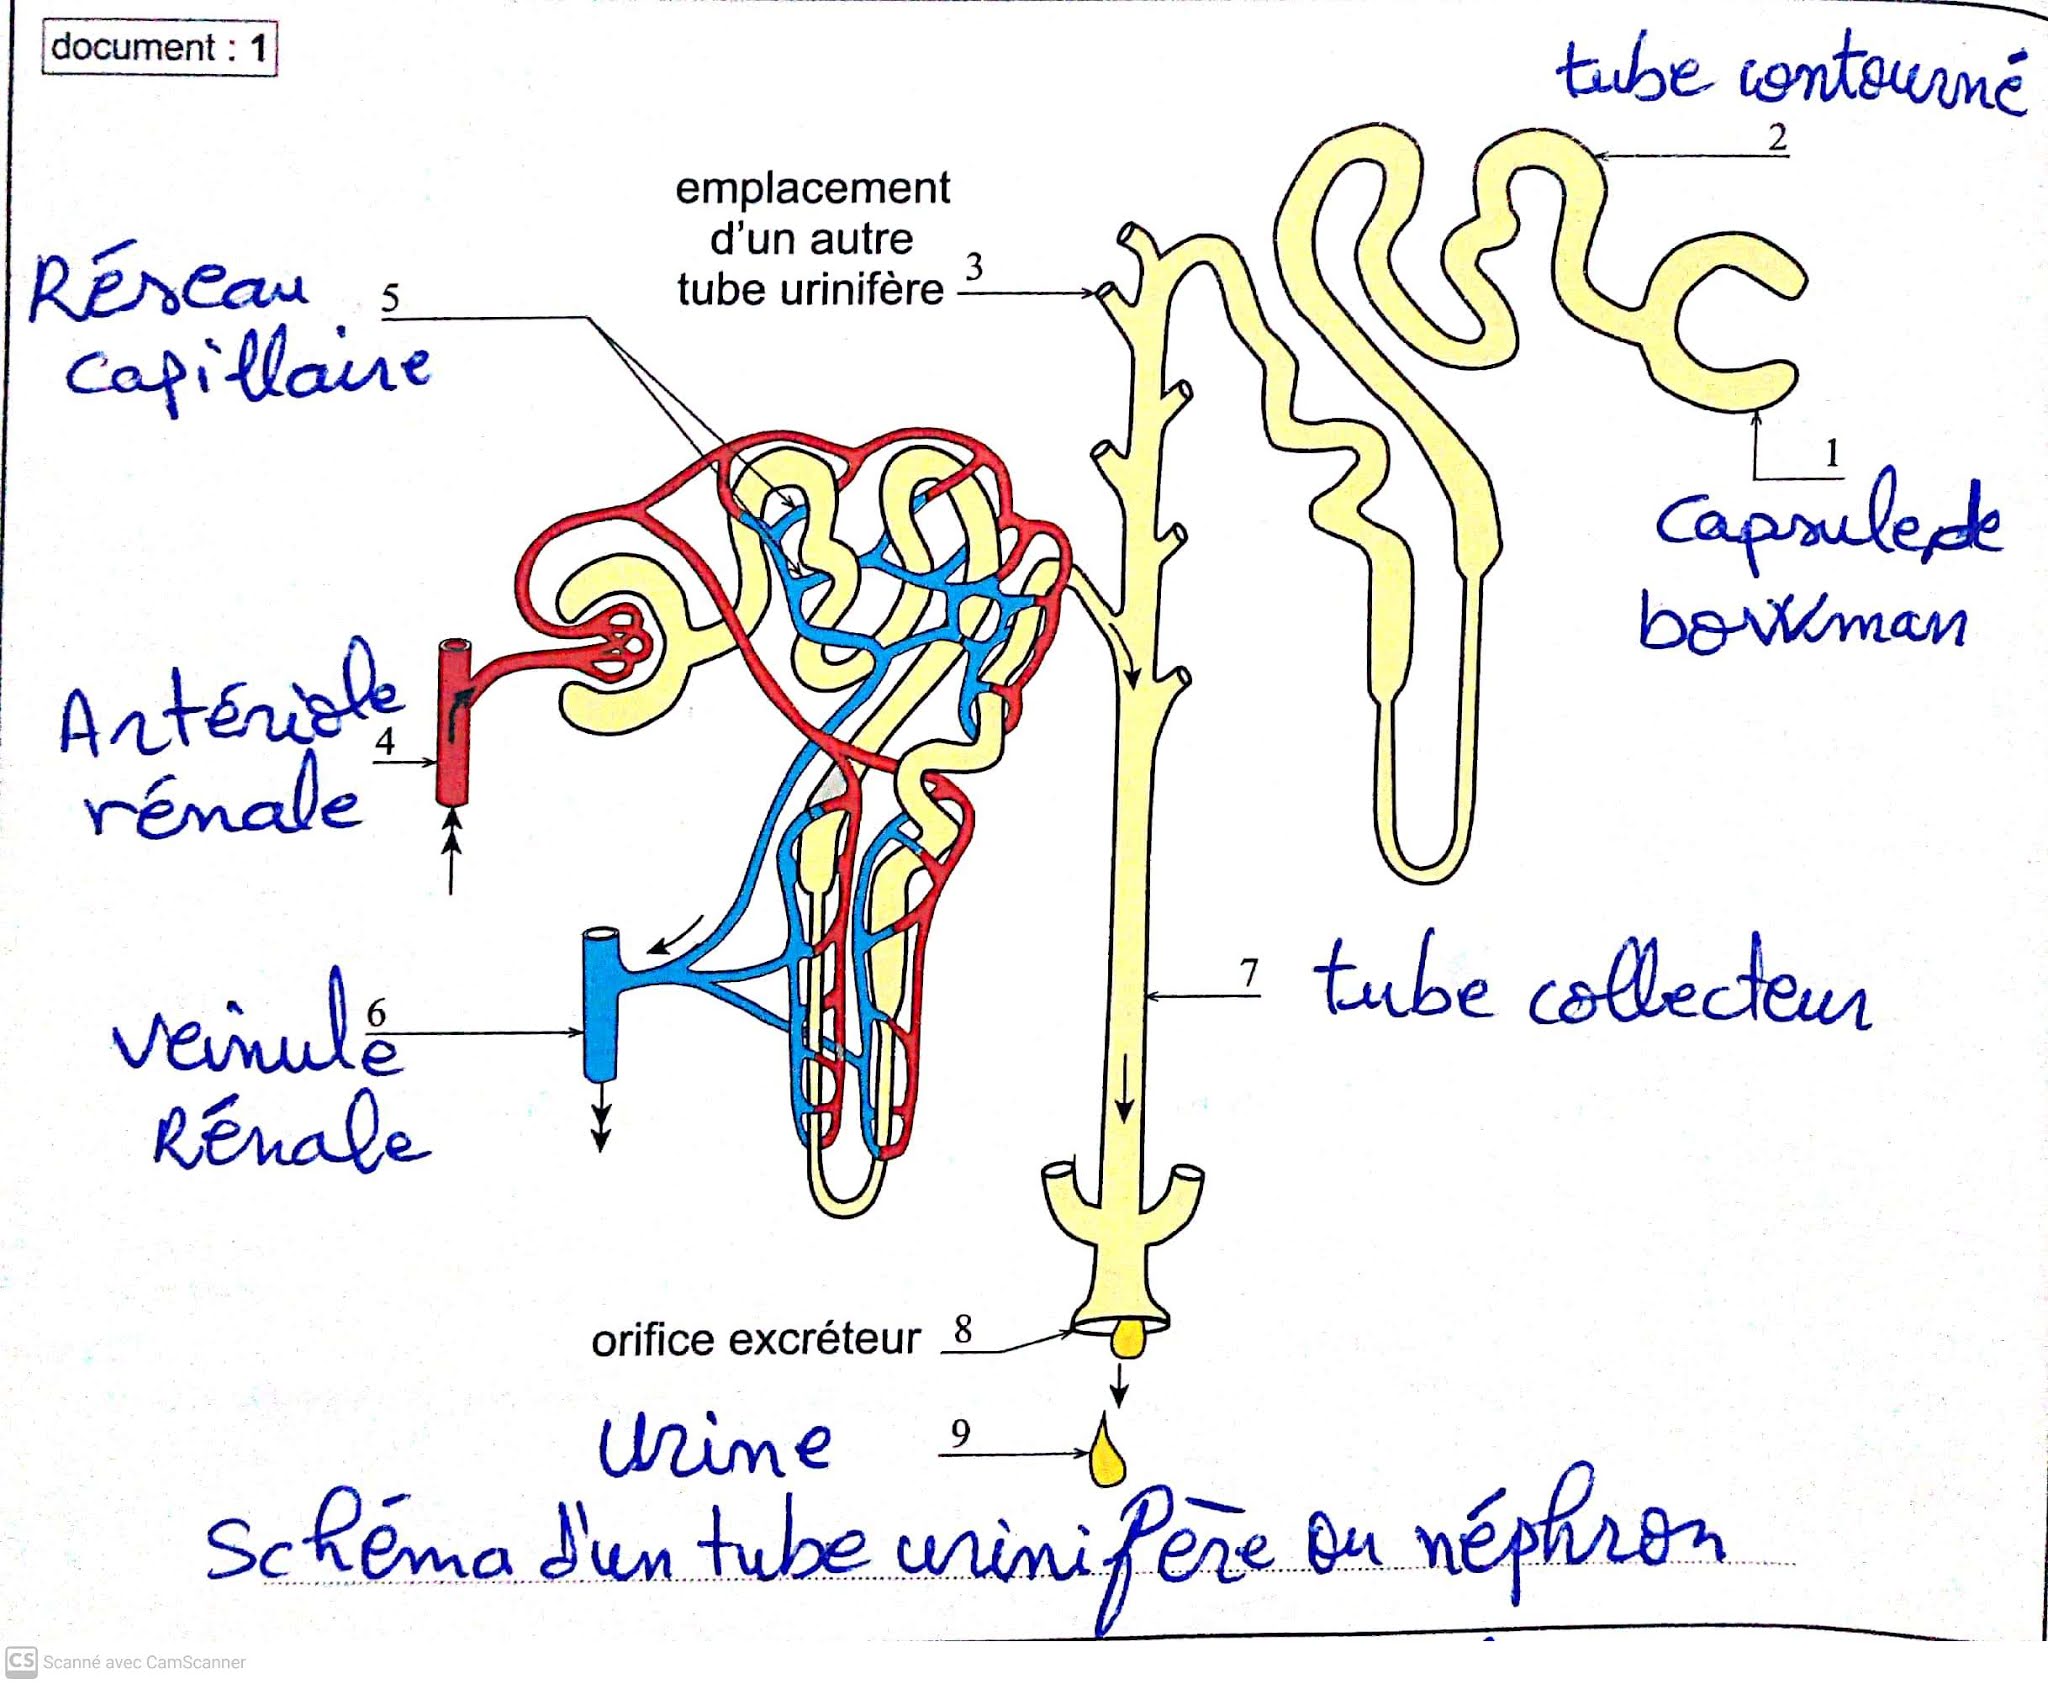 document : 1
tube contourné
2
emplacement
d'un autre
tube urinifère 3
Réseau
capillaire
5
1
capsule de
bowman
Artériole
rénale
4
7
tube collecteur
veinule
Rénale
6
orifice excréteur 8
urine
9
Schéma d'un tube urinifère ou néphron
CS Scanné avec CamScanner